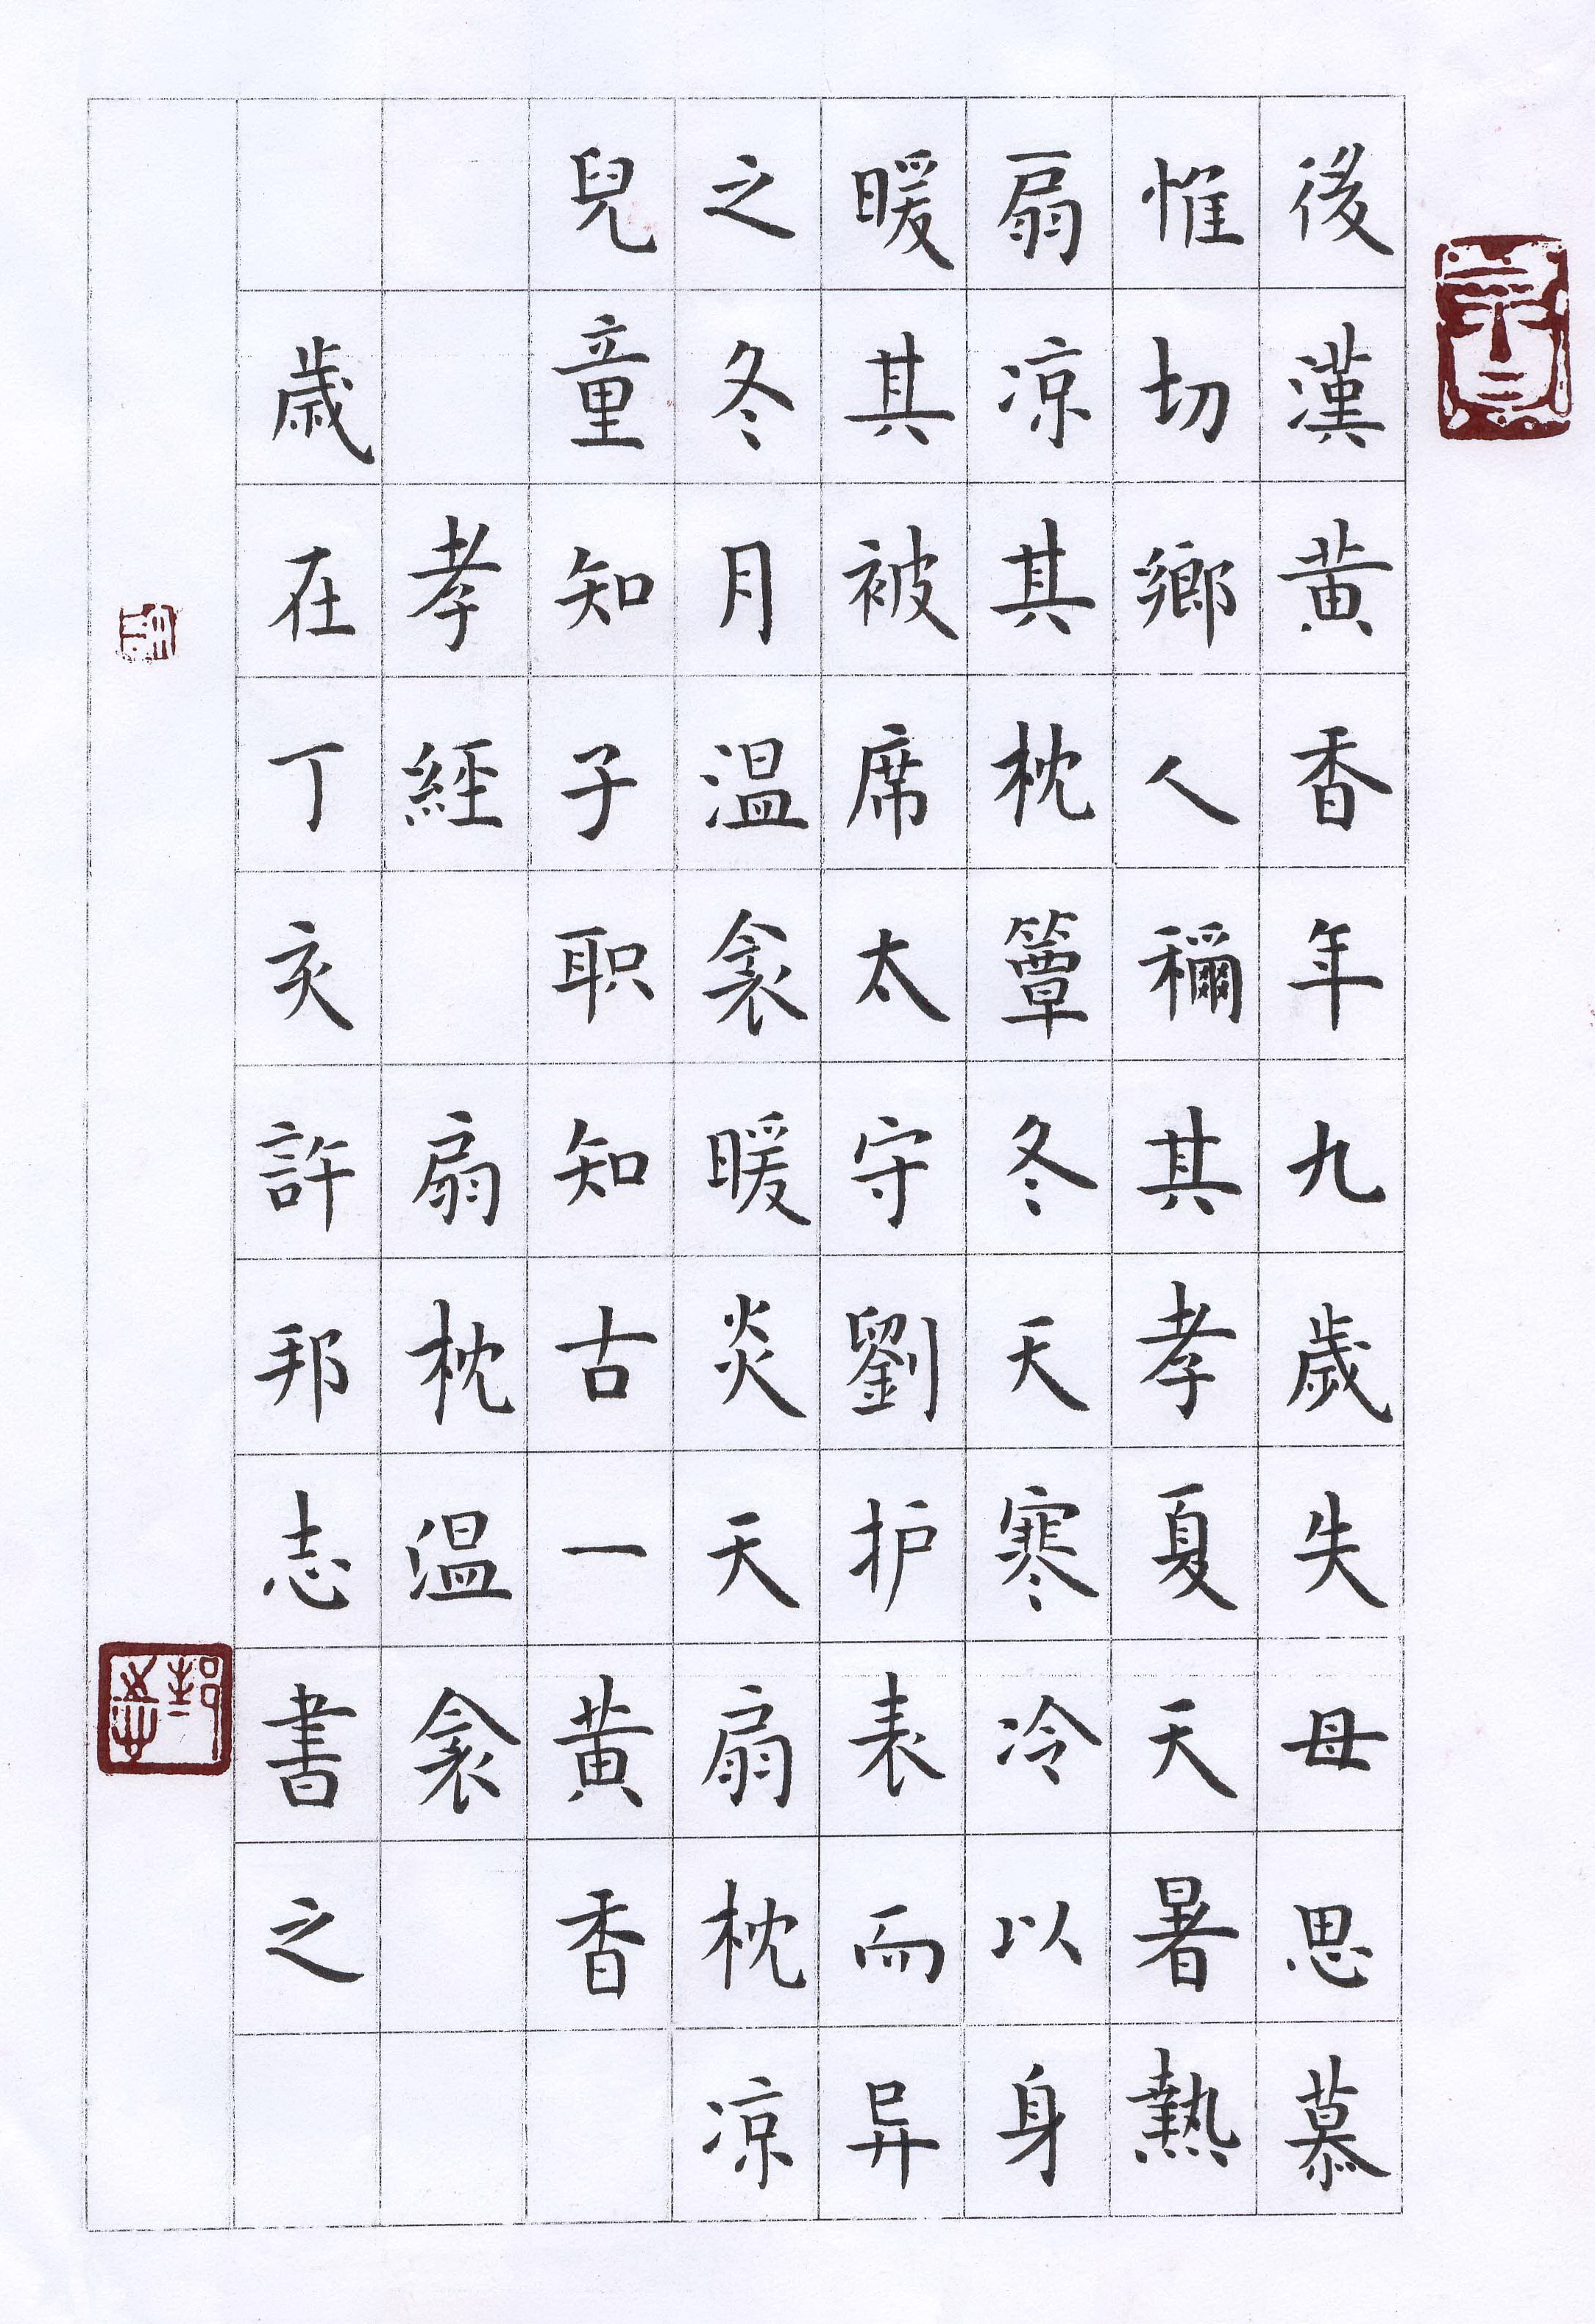 後漢黄香年九歲失母思慕
惟切鄉人穪其孝夏天暑熱
扇凉其枕簟冬天寒冷以身
暖其被席太守劉护表而异
之冬月温衾暖炎天扇枕凉
兒童知子职知古一黄香
孝經 扇枕温衾
歳在丁亥許邦志書之